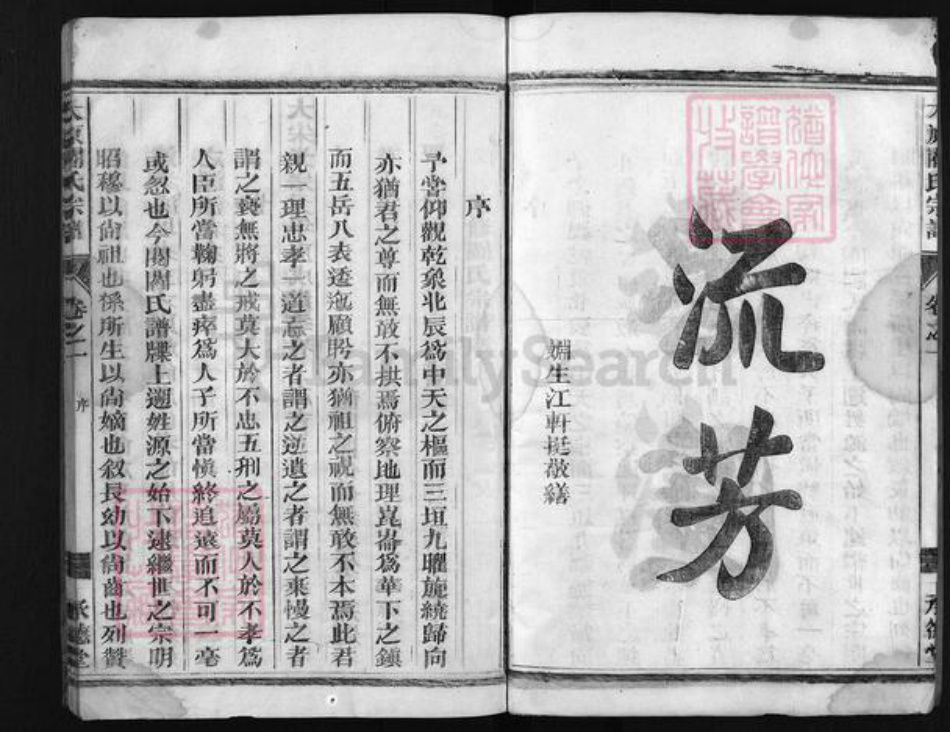 流芳
姻生江軒挺敬繕
序
予嘗仰觀乾象北辰爲中天之樞而三垣九曜旋繞歸向
亦猶君之尊而無敢不拱焉俯察地理崑崙爲華下之鎮
而五岳八表逶迤顧盻亦猶祖之視而無敢不本焉此君
親一理忠孝一道忘之者謂之逆遺之者謂之乘慢之者
謂之褻無將之戒莫大於不忠五刑之屬莫大於不孝爲
人臣所當鞠躬盡瘁爲人子所當愼終追遠而不可一亳
或忽也今閱閻氏譜牒上遡姓源之始下逮繼世之宗明
昭穆以尙祖也係所生以尙嫡也叙長幼以尙齒也列贊
氏宗譜
卷之二
序
承德堂
FamilySearch